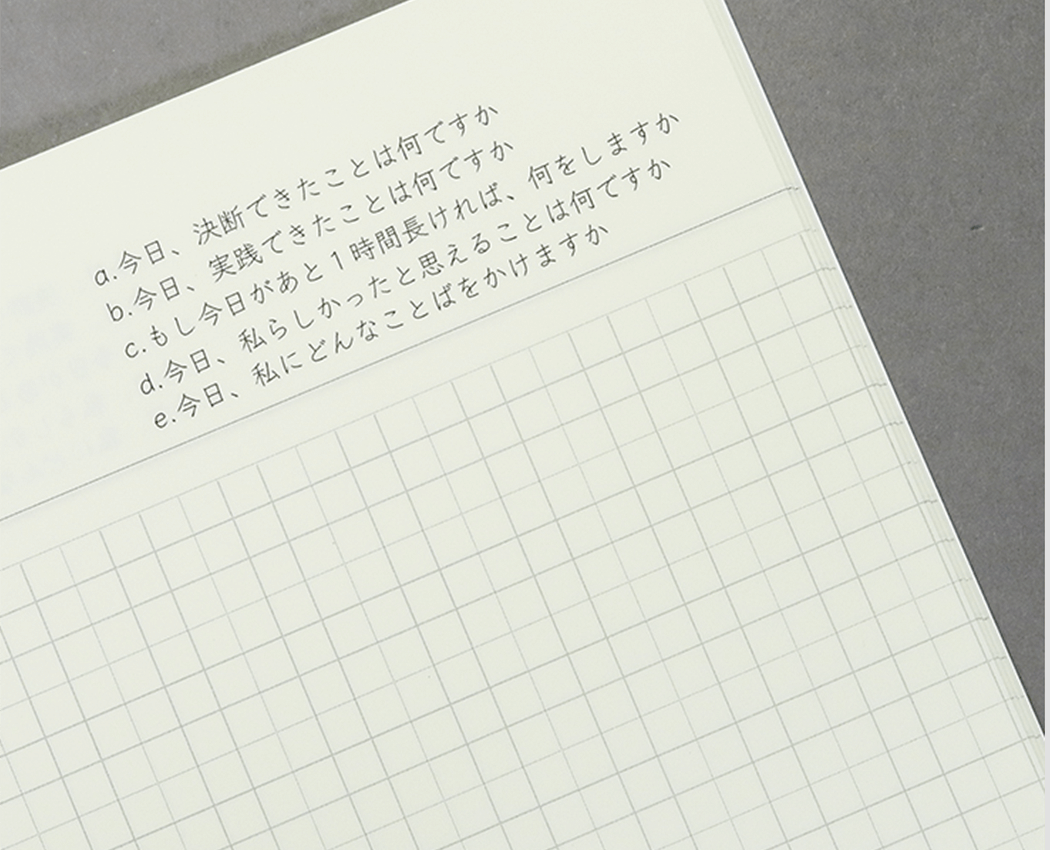 a.今日、決断できたことは何ですか
b.今日、実践できたことは何ですか
c.もし今日があと1時間長ければ、何をしますか
d.今日、私らしかったと思えることは何ですか
e.今日、私にどんなことばをかけますか